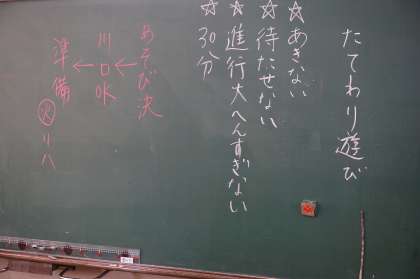 たてわり遊び
☆あきない
☆待たせない
☆進行大へんすぎない
☆30分
あそび決
↓
川口OK
↓
準備
㊋リハ